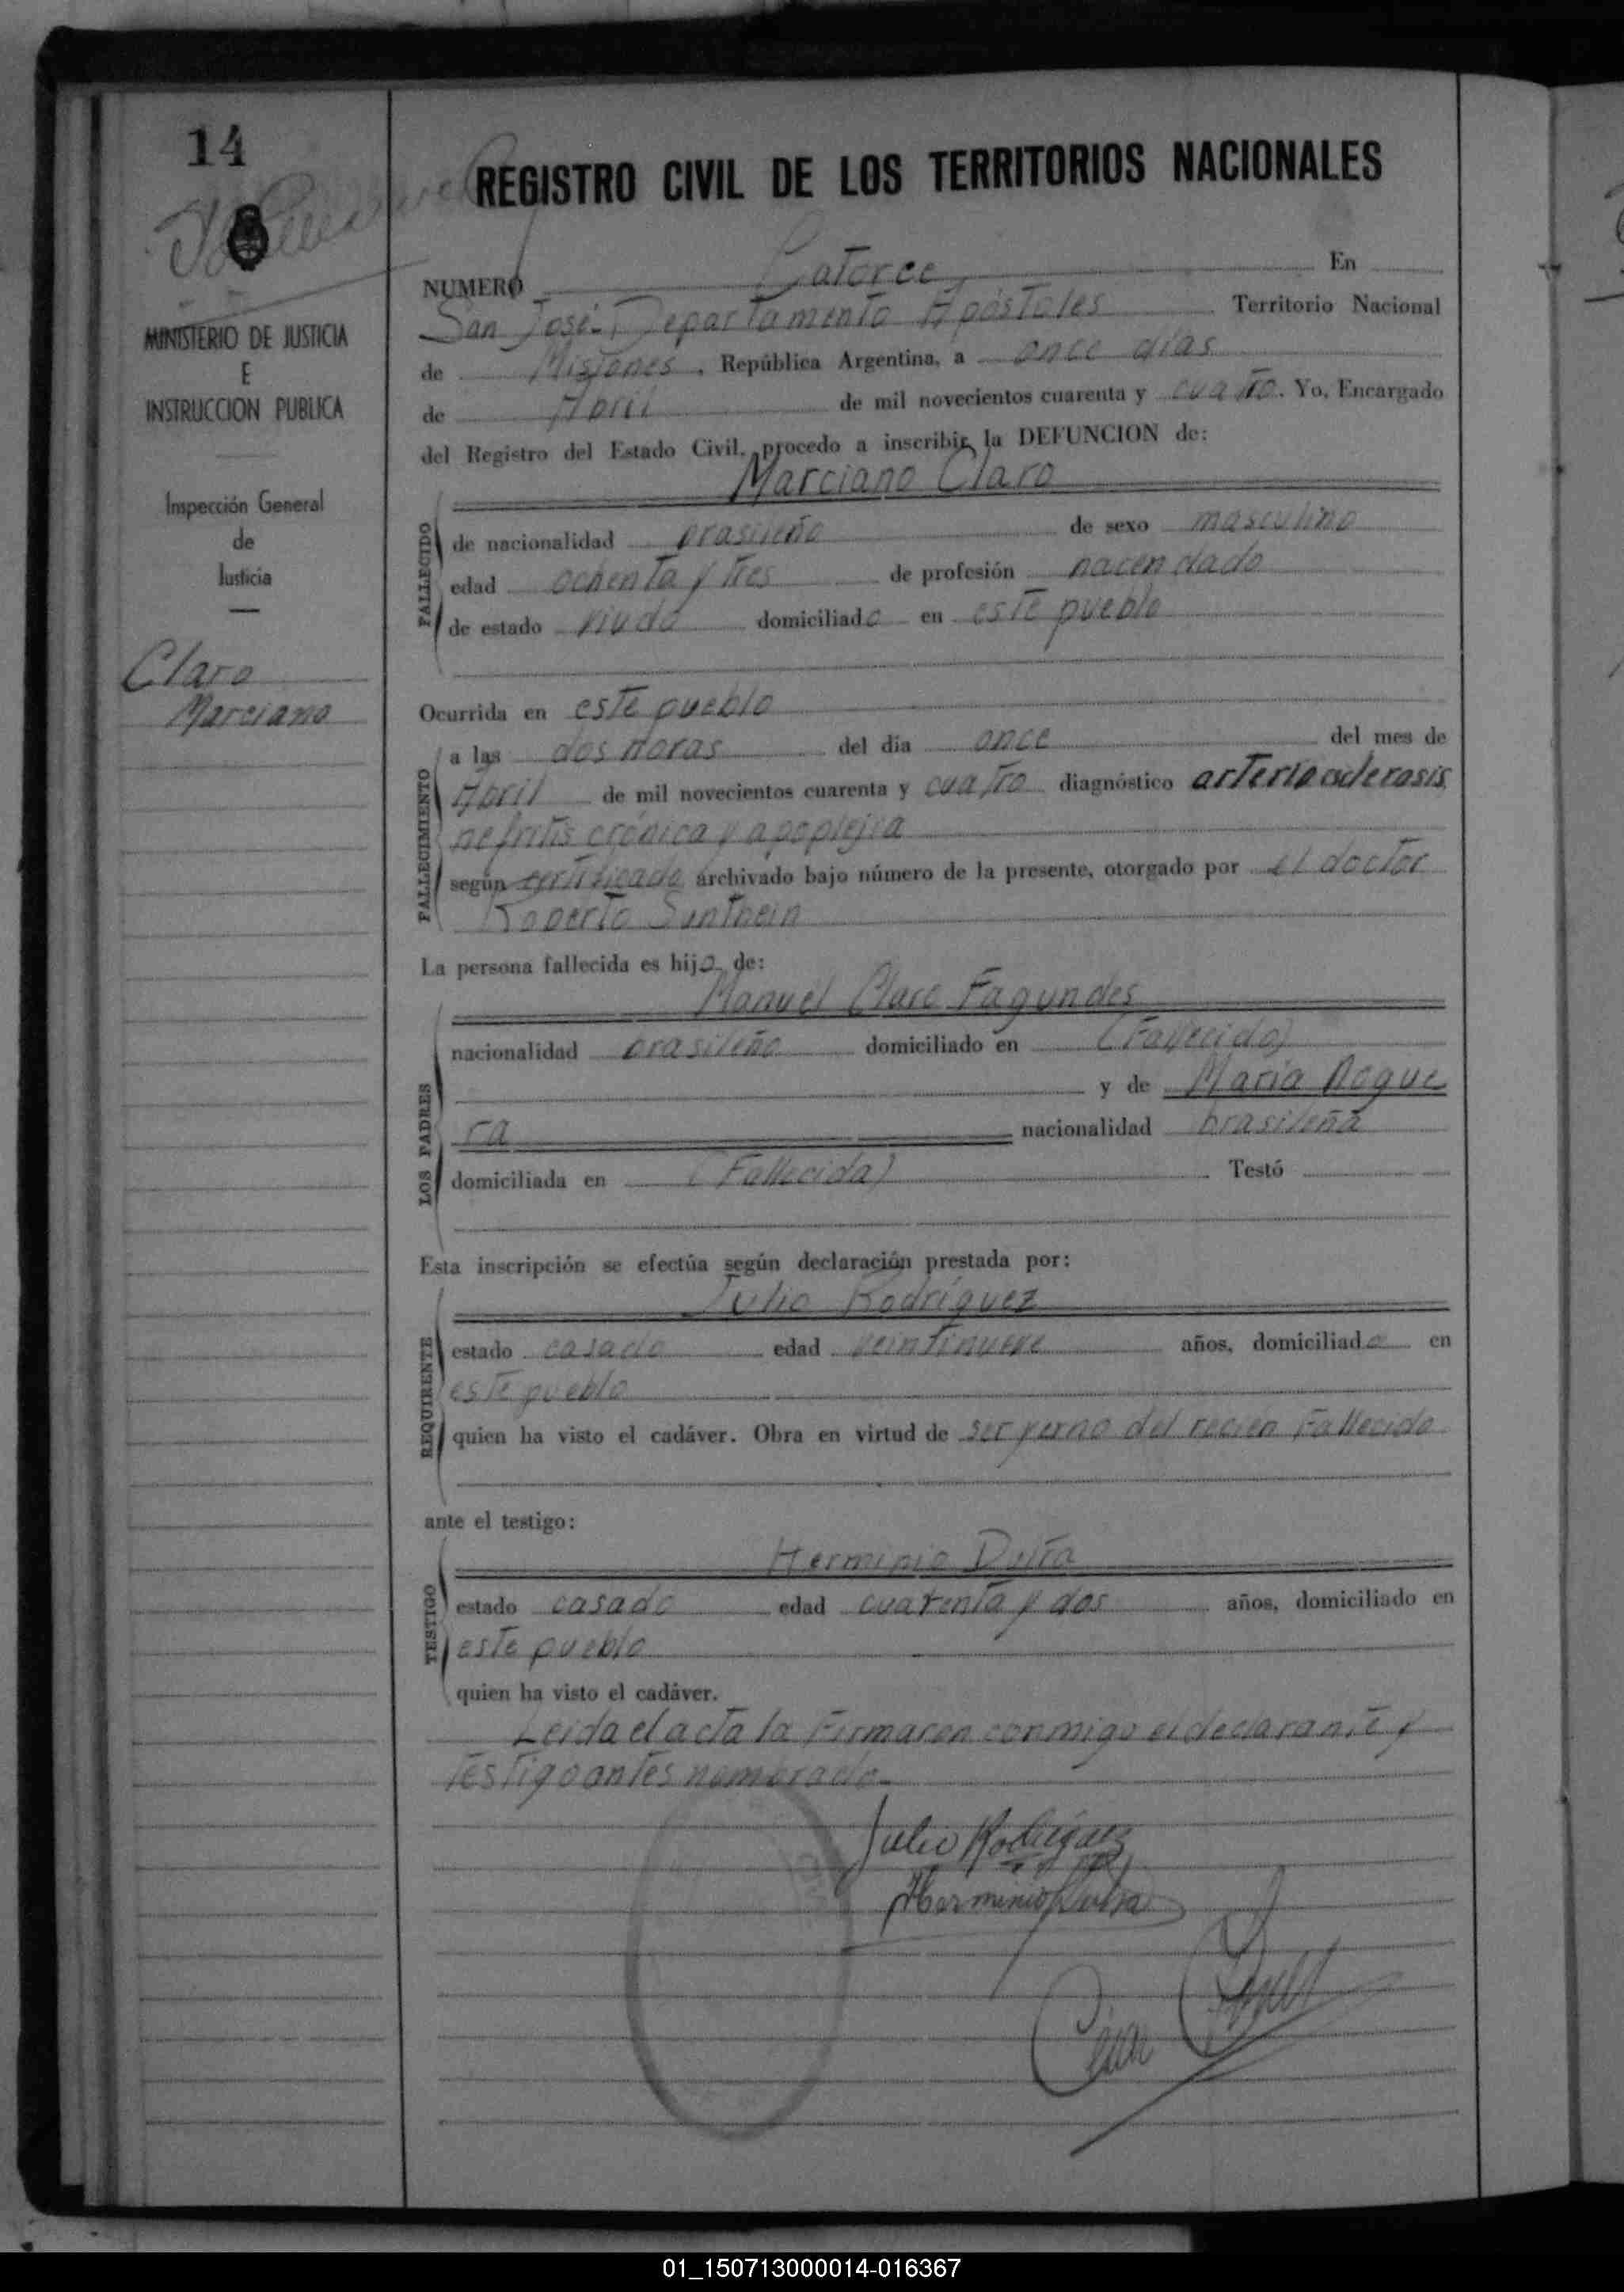 14
REGISTRO CIVIL DE LOS TERRITORIOS NACIONALES
MINISTERIO DE JUSTICIA
E
INSTRUCCION PUBLICA
Inspección General
de
Justicia
Claro
Marciano
NUMERO Catorce En
San José, Departamento Apóstoles Territorio Nacional
de Misiones, República Argentina, a once días
de Abril de mil novecientos cuarenta y cuatro. Yo, Encargado
del Registro del Estado Civil, procedo a inscribir la DEFUNCION de:
Marciano Claro
FALLECIDO
de nacionalidad brasileño de sexo masculino
edad ochenta y tres de profesión hacendado
de estado viudo domiciliado en este pueblo
Ocurrida en este pueblo
FALLECIMIENTO
a las dos horas del día once del mes de
Abril de mil novecientos cuarenta y cuatro diagnóstico
nefritis crónica y apoplejía
según certificado archivado bajo número de la presente, otorgado por el doctor
Roberto
La persona fallecida es hijo de:
Manuel Claro Fagundes
LOS PADRES
nacionalidad brasileño domiciliado en (Fallecido)
y de Maria Nogue
ra nacionalidad brasileña
domiciliada en (Fallecida) Testó
Esta inscripción se efectúa según declaración prestada por:
Julio Rodríguez
REQUIRENTE
estado casado edad veintinueve años, domiciliado en
este pueblo
quien ha visto el cadáver. Obra en virtud de ser yerno del recien Fallecido
ante el testigo:
Herminio Dutra
TESTIGO
estado casado edad cuarenta y dos años, domiciliado en
este pueblo
quien ha visto el cadáver.
Leida el acta la Firmaron conmigo el declarante y
testigo antes nombrado
Julio Rodríguez
Herminio Dutra
01_150713000014-016367